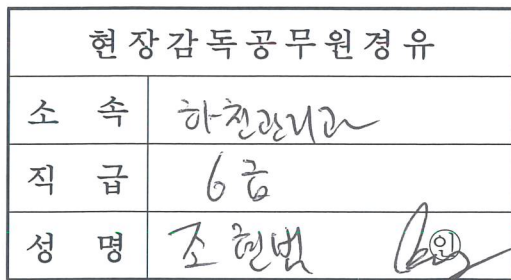 현장감독공무원경유
소 속 하천관리과
직 급 6급
성 명 조현범 인